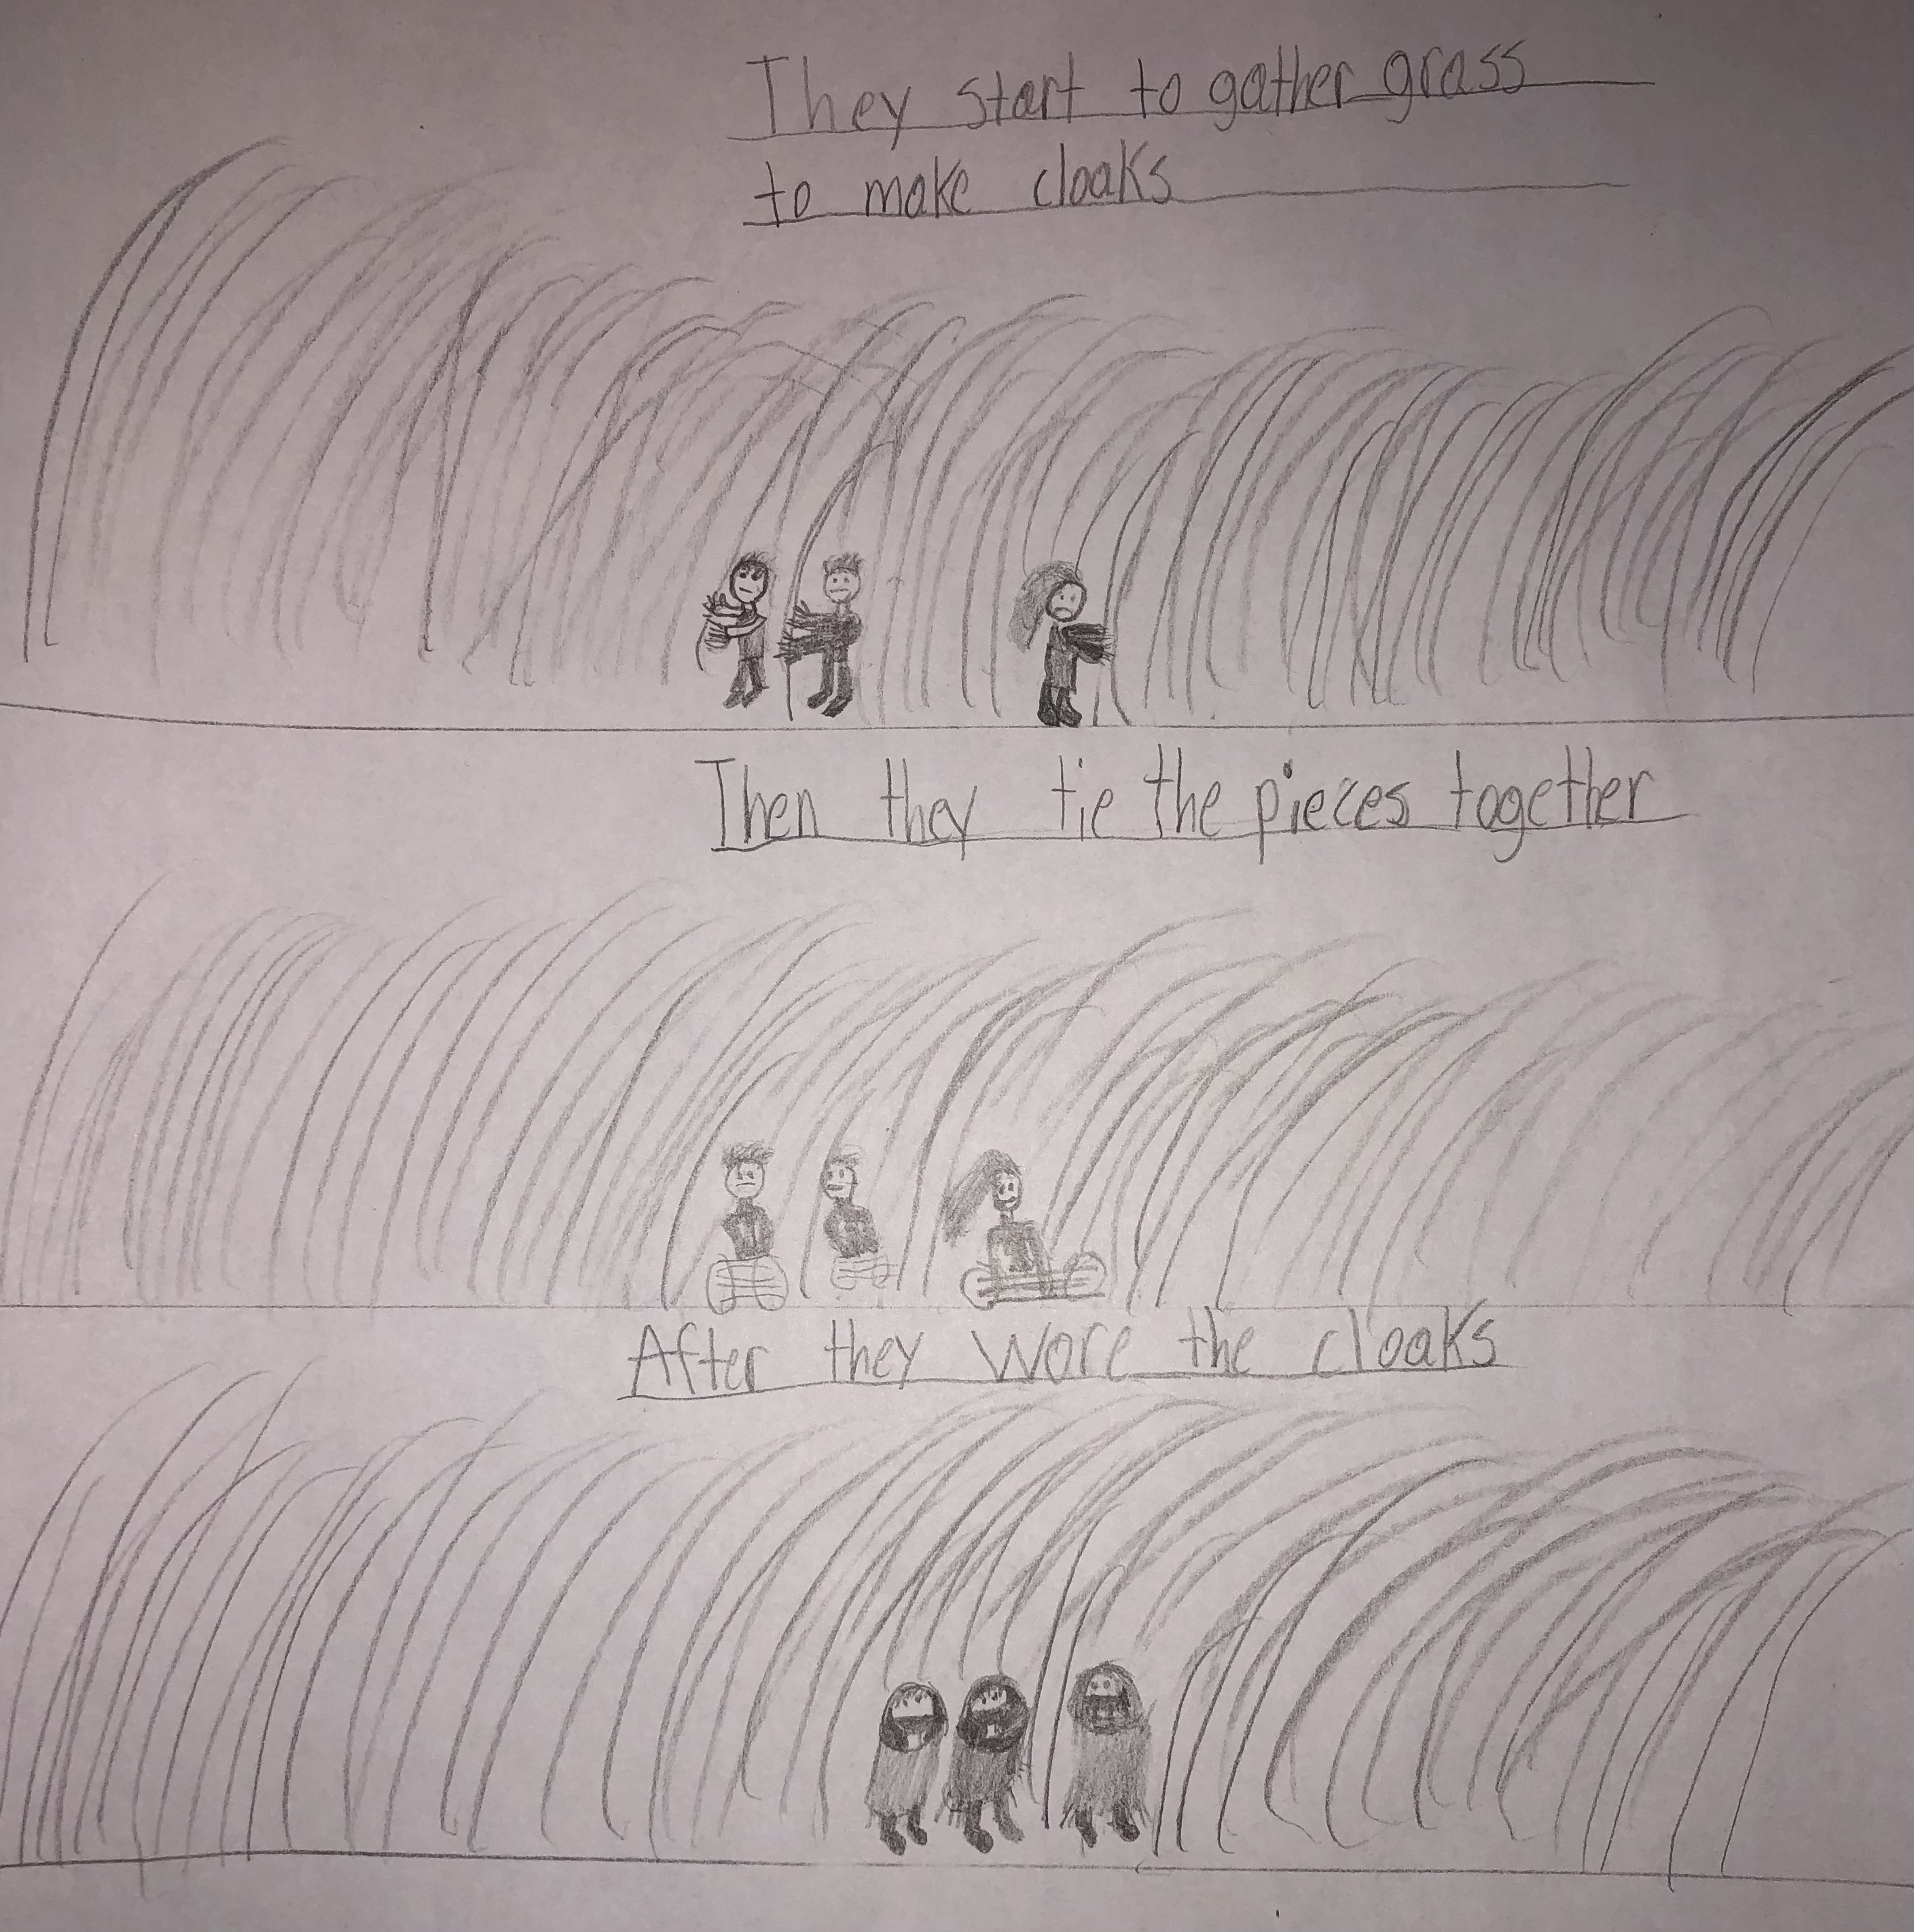 They start to gather grass
to make cloaks
Then they tie the pieces together
After they wore the cloaks